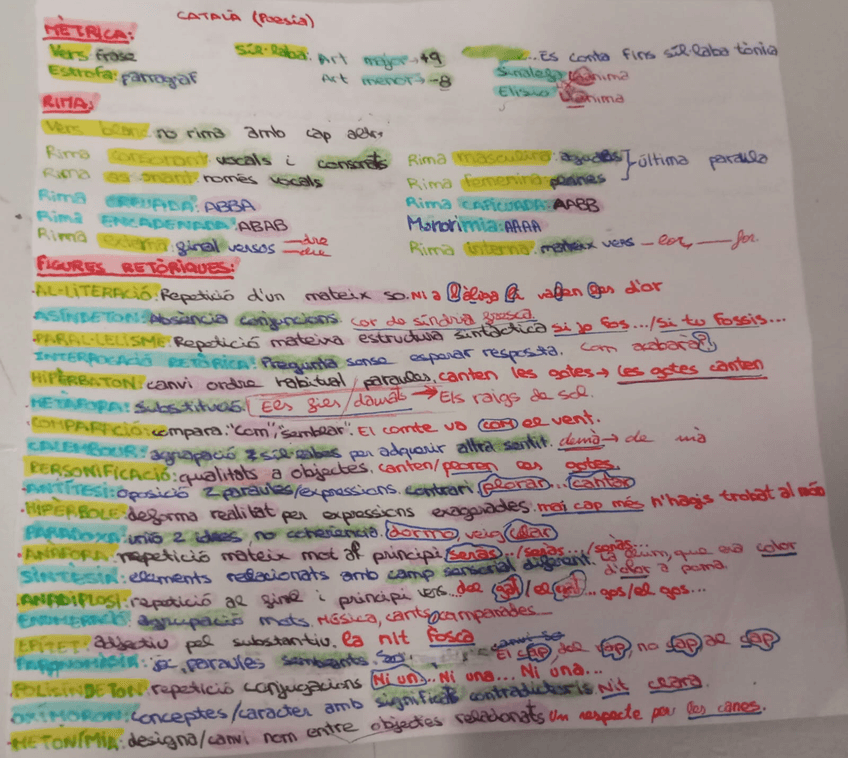 CATALÀ (Poesia)
MÈTRICA:
Vers: frase
Síl·laba: Art major → +9
... Es conta fins síl·laba tònica
Estrofa: parràgraf
Art menor → -8
Sinalefa
Elisió
RIMA:
Vers blanc: no rima amb cap altre
Rima consonant: vocals i consonants
Rima masculina: agudes
última paraula
Rima assonant: només vocals
Rima femenina: planes
Rima CREUADA: ABBA
Rima CAPICUADA: AABB
Rima ENCADENADA: ABAB
Monorimia: AAAA
Rima externa: final versos
Rima interna: mateix vers
FIGURES RETÒRIQUES:
AL·LITERACIÓ: Repetició d'un mateix so.
ASÍNDETON: Absència conjuncions. Cor de síndria fresca.
PARAL·LELISME: Repetició mateixa estructura sintàctica si jo fos.../si tu fossis...
INTERROGACIÓ RETÒRICA: Pregunta sense esperar resposta. Com acabarà?
HIPÈRBATON: canvi ordre habitual paraules. canten les gotes → les gotes canten
METÀFORA: Substitució. Els fils/daurats → Els raigs de sol.
COMPARACIÓ: compara. "Com", "semblar". El comte va com el vent.
CALEMBOUR: agrupació 2 síl·labes per adquirir altre sentit. demà → de mà
PERSONIFICACIÓ: qualitats a objectes. canten/ploren les gotes.
ANTÍTESI: oposició 2 paraules/expressions. contrari plorar... cantar
HIPÈRBOLE: deforma realitat per expressions exagerades. mai cap més n'hagis trobat al món
PARADOXA: unió 2 idees, no coherència. dormo, veig clar
ANÀFORA: repetició mateix mot al principi. seràs.../seràs.../seràs...
SINTÈSIA: elements relacionats amb camp sensorial diferent. la llum, que era color d'olor a poma.
ANADIPLOSI: repetició al final i principi vers. ...del gat/el gat... gos/el gos...
ENUMERACIÓ: agrupació mots. Música, cants,
EPÍTET: adjectiu pel substantiu. la nit fosca
PARONOMÀSIA: paraules semblants. El cap del cap, no cap al cap
POLISÍNDETON: repetició conjugacions Ni un... Ni una... Ni una...
OXÍMORON: conceptes/caràcter amb significats contradictoris Nit clara.
METONÍMIA: designa/canvi nom entre objectes relacionats Un respecte per les canes.